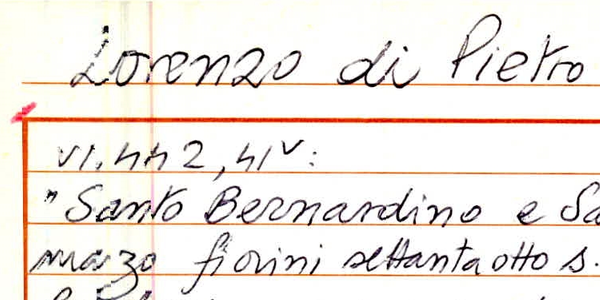 Lorenzo di Pietro
VI.442, 41v:
"Santo Bernardino e Sa
marzo fiorini settantaotto s.